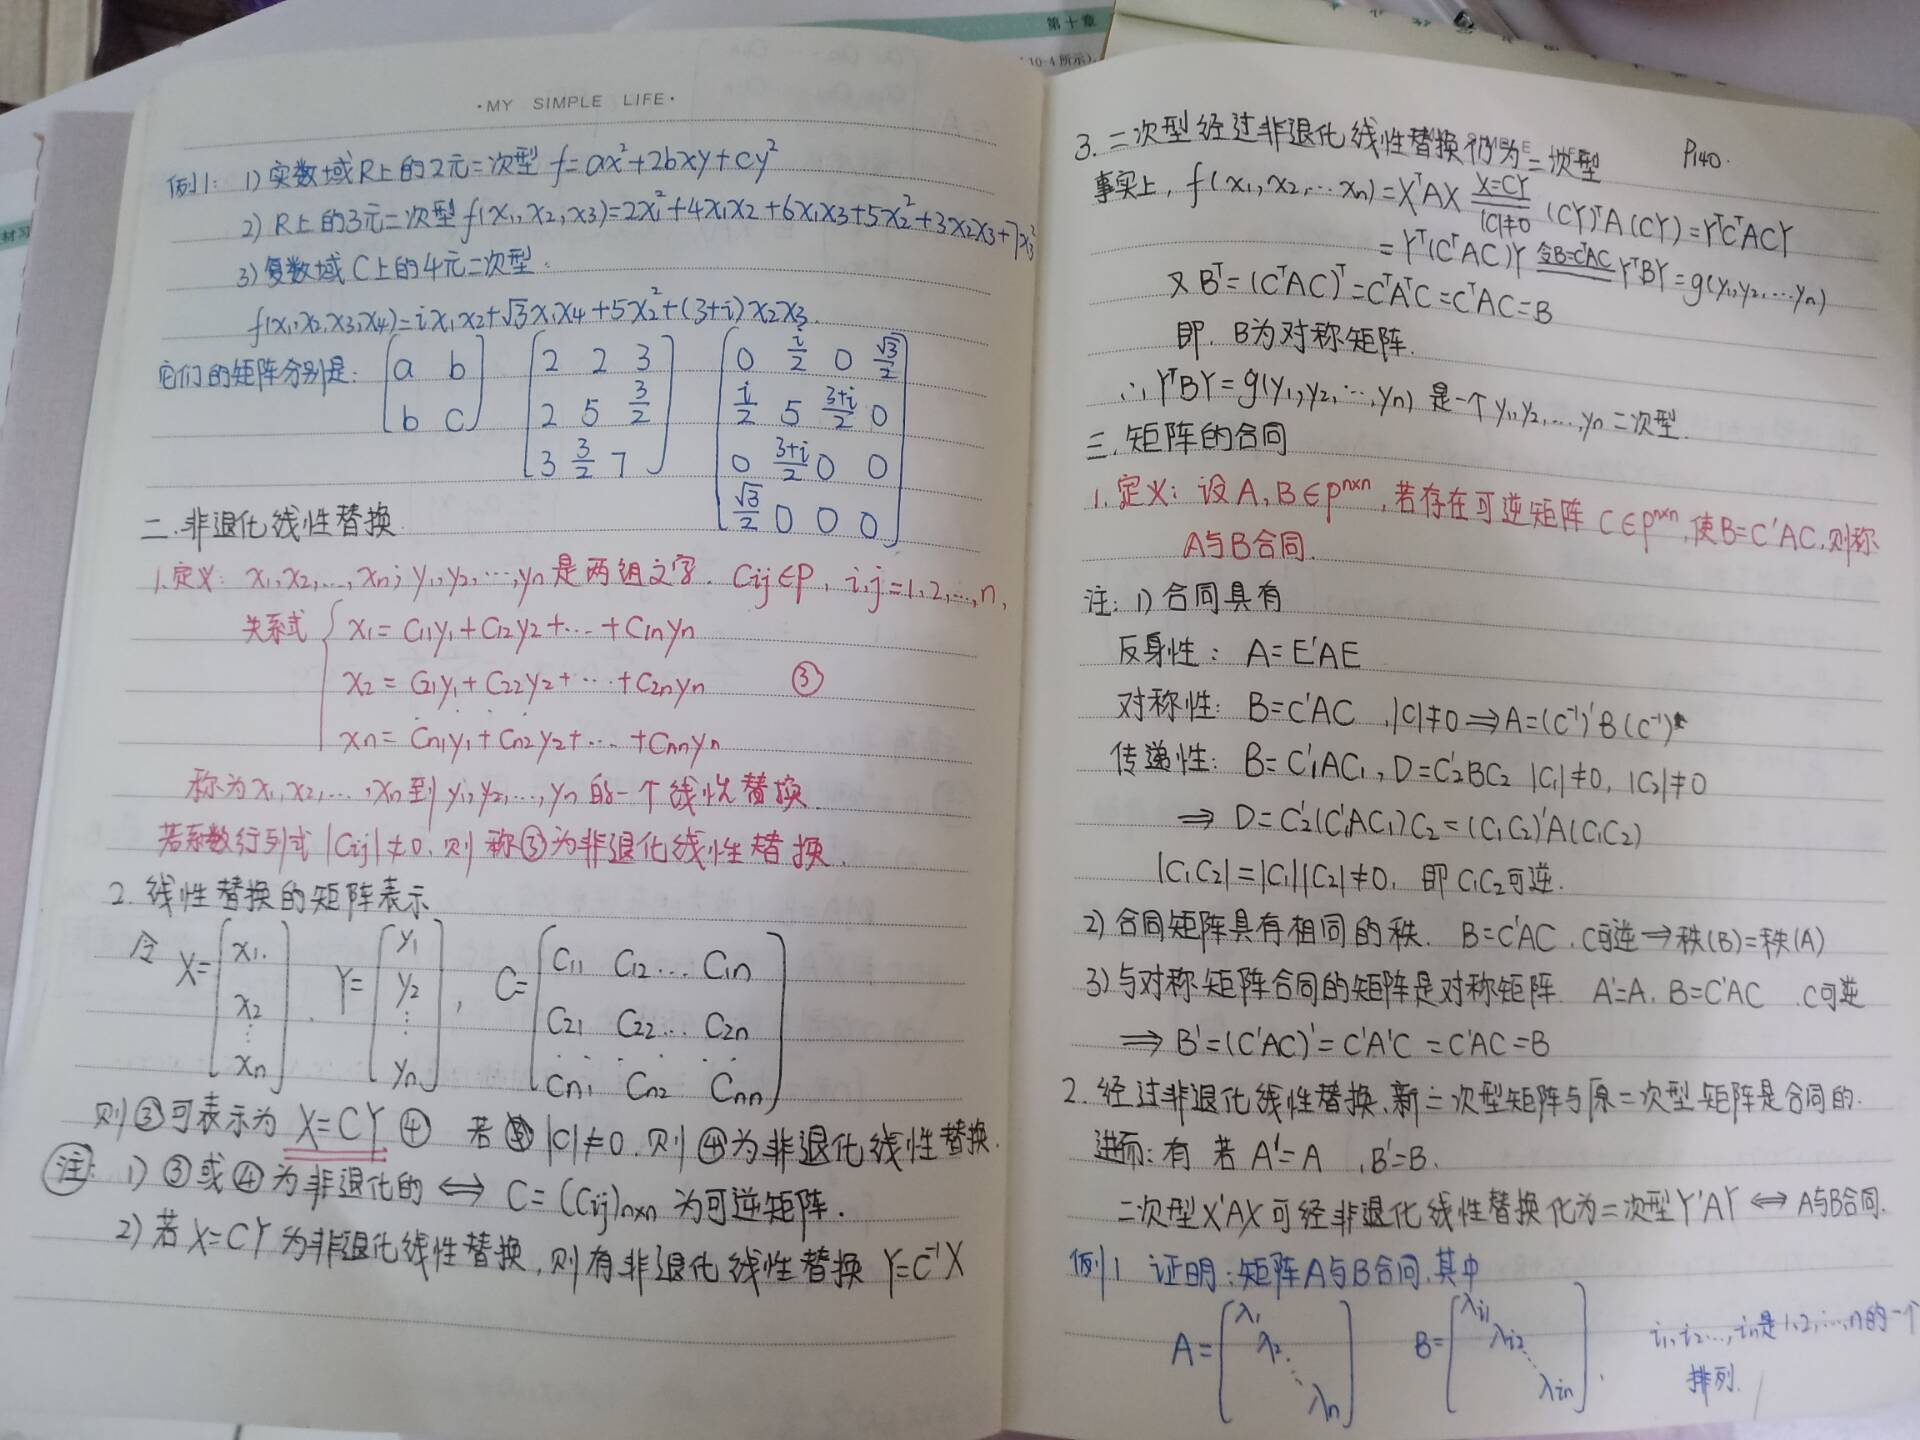 第十章
10-4所示).
·MY SIMPLE LIFE·
例1: 1) 实数域R上的2元二次型 f=ax²+2bxy+cy²
2) R上的3元二次型 f(x₁,x₂,x₃)=2x₁²+4x₁x₂+6x₁x₃+5x₂²+3x₂x₃+7x₃²
3) 复数域C上的4元二次型.
f(x₁,x₂,x₃,x₄)=ix₁x₂+√3x₁x₄+5x₂²+(3+i)x₂x₃.
它们的矩阵分别是: [a b; b c] [2 2 3; 2 5 3/2; 3 3/2 7] [0 i/2 0 √3/2; i/2 5 (3+i)/2 0; 0 (3+i)/2 0 0; √3/2 0 0 0]
二.非退化线性替换
1.定义: x₁,x₂,…,xn; y₁,y₂,…,yn 是两组文字. Cij∈P, i,j=1,2,…,n,
关系式 { x₁=C₁₁y₁+C₁₂y₂+…+C₁nyn
x₂=C₂₁y₁+C₂₂y₂+…+C₂nyn ③
xn=Cn₁y₁+Cn₂y₂+…+Cnnyn
称为x₁,x₂,…,xn到y₁,y₂,…,yn的一个线性替换.
若系数行列式|Cij|≠0,则称③为非退化线性替换.
2.线性替换的矩阵表示
令 X=[x₁ x₂ ⋮ xn], Y=[y₁ y₂ ⋮ yn], C=[C₁₁ C₁₂ … C₁n; C₂₁ C₂₂ … C₂n; … Cn₁ Cn₂ Cnn]
则③可表示为 X=CY ④ 若 |C|≠0,则④为非退化线性替换.
注: 1) ③或④为非退化的 ⟺ C=(Cij)n×n 为可逆矩阵.
2) 若X=CY为非退化线性替换,则有非退化线性替换 Y=C⁻¹X
3.二次型经过非退化线性替换仍为二次型 P140.
事实上, f(x₁,x₂,…xn)=XᵀAX X=CY |C|≠0 (CY)ᵀA(CY)=YᵀCᵀACY
=Yᵀ(CᵀAC)Y 令B=CᵀAC YᵀBY=g(y₁,y₂,…yn)
又Bᵀ=(CᵀAC)ᵀ=CᵀAᵀC=CᵀAC=B
即.B为对称矩阵.
∴YᵀBY=g(y₁,y₂,…,yn) 是一个y₁,y₂,…,yn二次型.
三.矩阵的合同
1.定义: 设A,B∈Pⁿˣⁿ,若存在可逆矩阵 C∈Pⁿˣⁿ,使B=C'AC,则称
A与B合同.
注: 1) 合同具有
反身性: A=E'AE
对称性: B=C'AC ,|C|≠0⟹A=(C⁻¹)'B(C⁻¹)
传递性: B=C₁'AC₁, D=C₂'BC₂ |C₁|≠0, |C₂|≠0
⟹ D=C₂'(C₁'AC₁)C₂=(C₁C₂)'A(C₁C₂)
|C₁C₂|=|C₁||C₂|≠0, 即C₁C₂可逆.
2) 合同矩阵具有相同的秩. B=C'AC .C可逆⟹秩(B)=秩(A)
3) 与对称矩阵合同的矩阵是对称矩阵. A'=A, B=C'AC .C可逆
⟹ B'=(C'AC)'=C'A'C=C'AC=B
2.经过非退化线性替换,新二次型矩阵与原二次型矩阵是合同的.
进而:有 若A'=A ,B'=B.
二次型X'AX可经非退化线性替换化为二次型Y'AY ⟺ A与B合同.
例1 证明:矩阵A与B合同,其中
A=[λ₁ λ₂ ⋱ λn] B=[λi₁ λi₂ ⋱ λin]. i₁,i₂…,in是1,2,…,n的一个
排列.